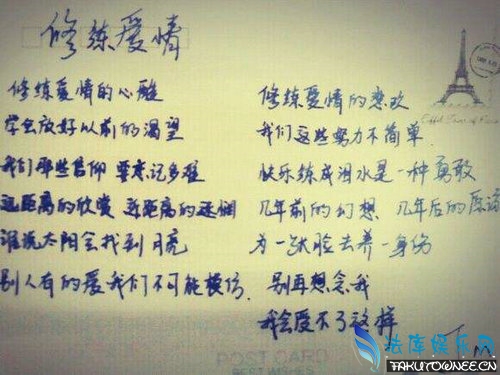 修练爱情
修练爱情的心酸
学会放好以前的渴望
我们那些信仰 要忘记多难
远距离的欣赏 近距离的迷惘
谁说太阳会找到月亮
别人有的爱 我们不可能模仿
修练爱情的悲欢
我们这些努力不简单
快乐练成泪水 是一种勇敢
几年前的幻想 几年后的原谅
为一张脸去养一身伤
别再想念我
我会受不了这样
T.m
POST CARD
法库娱乐网
FAKUTOWNEE.CN